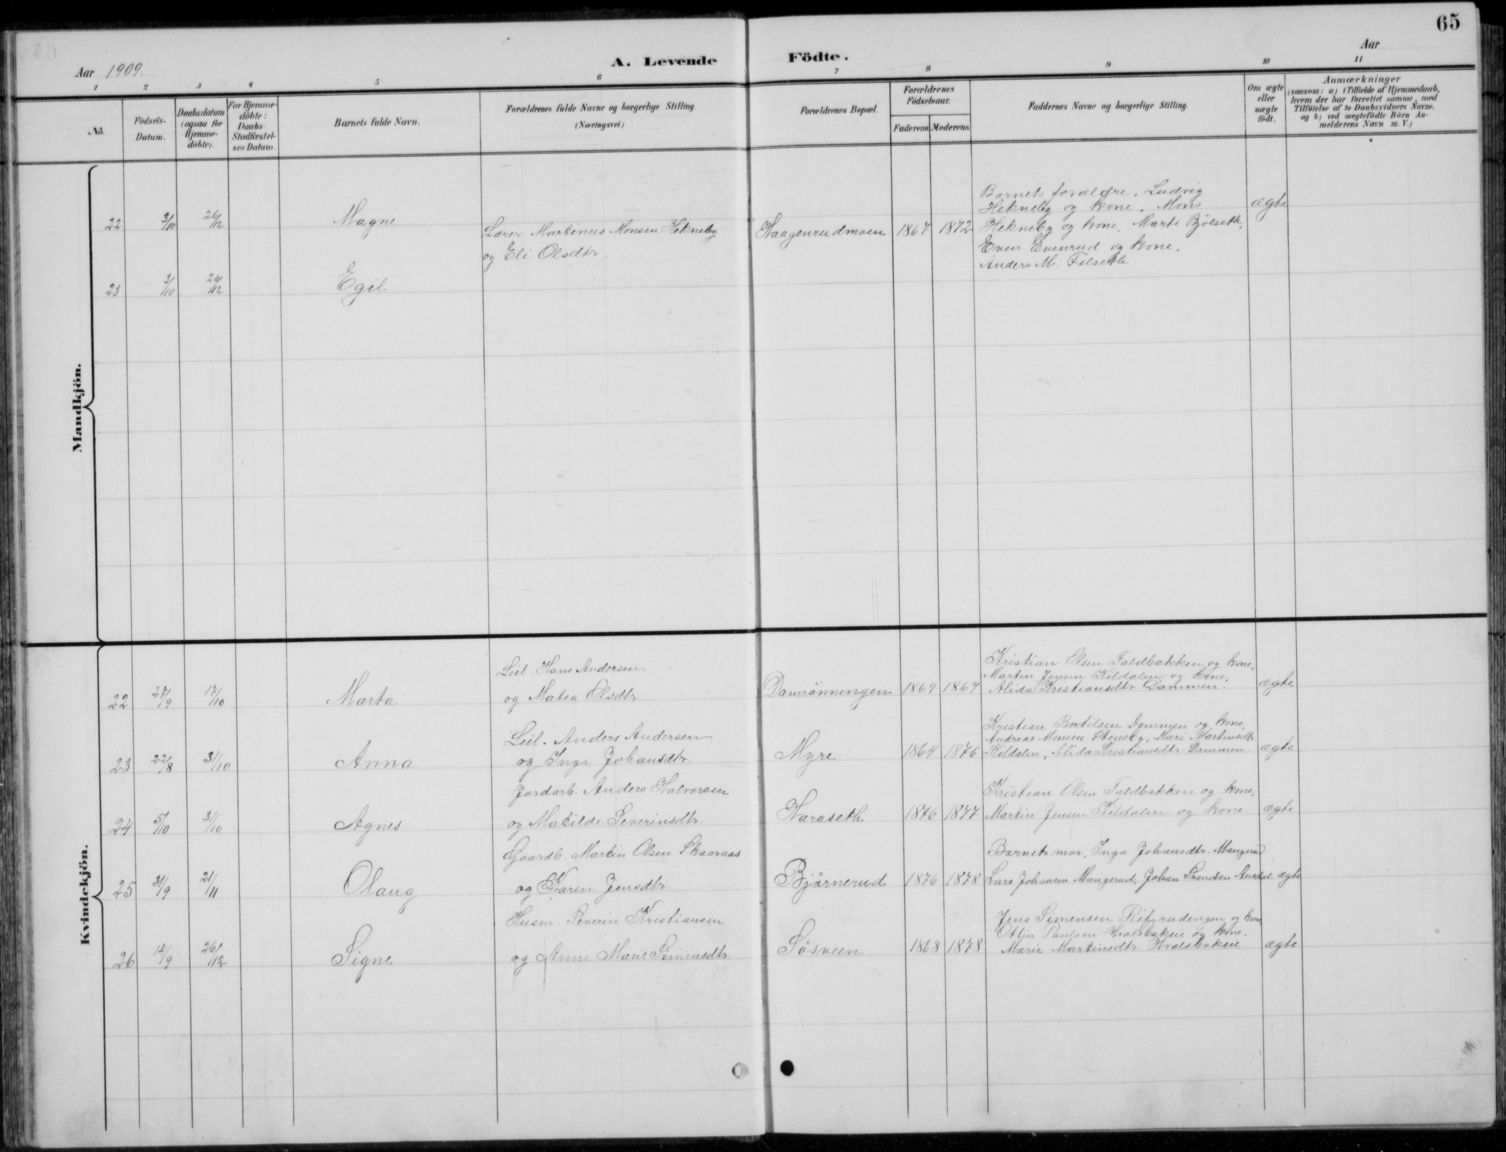 65
Aar 1909.
A. Levende Födte.
Aar
1 2 3 4 5 6 7 8 9 10 11
No.
Födsels-Datum.
Daabsdatum (ogsaa for Hjemme-döbte).
For Hjemme-döbte: Daabs-Stadfæstel-ses Datum.
Barnets fulde Navn.
Forældrenes fulde Navne og borgerlige Stilling. (Næringsvei.)
Forældrenes Bopæl.
Forældrenes Födselsaar.
Faderens. Moderens.
Faddernes Navne og borgerlige Stilling.
Om ægte eller uægte födt.
Anmærkninger
(saasom: a) i Tilfælde af Hjemmedaab, hvem der har forrettet samme, med Tilföielse af to Daabsvidners Navne, og b) ved uægtefödte Börn An-melderens Navn m. V.)
Mandkjön.
Barnets forældre, Ludvig
Hekneby og kone, Mons
22 3/10 26/12 Magne Lærer Markenus Monsen Hekneby Haagenrudmoen 1867 1872 Hekneby og kone, Marte Bjölseth, ægte
og Eli Olsdtr. Even Evenrud og kone,
Anders M. Felseth.
23 3/10 26/12 Egil
Kvindekjön.
Leil. Hans Andersen Kristian Olsen Faldbakken og kone,
Martin Jensen Kildalen og kone,
22 27/9 17/10 Marta og Matea Olsdtr. Damrönningen 1869 1867 Alida Kristiansdtr. Dammen ægte
Leil. Anders Andersen Kristian Bertilsen Dammen og kone,
Andreas Monsen Stensby, Mari Martinsdtr.
23 22/8 31/10 Anna og Inga Johansdtr. Myre 1864 1876 Kildalen, Alida Kristiansdtr. Dammen ægte
Jordarb. Anders Halvorsen Kristian Olsen Faldbakken og kone,
24 5/10 31/10 Agnes og Matilde Severinsdtr. Haraseth 1876 1877 Martin Jensen Kildalen og kone ægte
Gaardb. Martin Olsen Skaaraas Barnets mor, Inga Johansdtr. Mangerud
25 21/11 Olaug og Karen Jensdtr. Bjørnerud 1876 1878 Lars Johansen Mangerud, Johan ægte
Husm. Severin Kristiansen Jens Simensen og kone
Ottin Paulsen Hvalsbakken og kone,
26 12/9 26/12 Signe og Anne Marie Simensdtr. Søsveen 1868 1878 Marie Martinsdtr. ægte